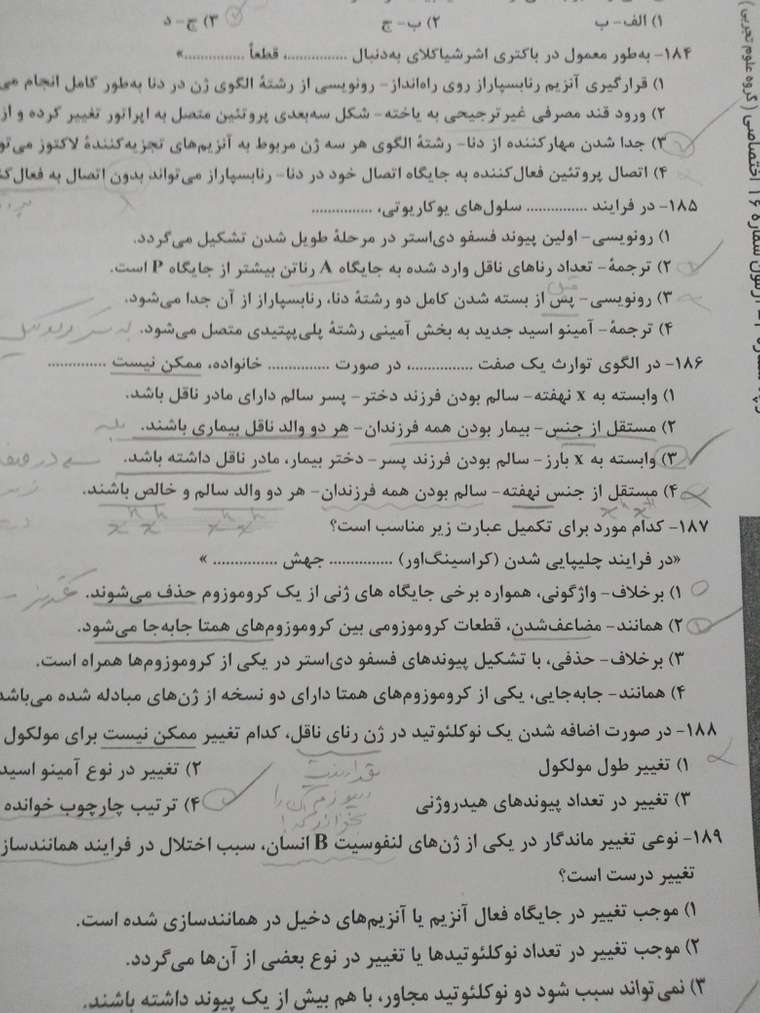 ۱) الف- ب ۲) ب- ج ۳) ج- د
۱۸۴- به‌طور معمول در باکتری اشرشیاکلای به‌دنبال ...............، قطعاً ...............»
۱) قرارگیری آنزیم رنابسپاراز روی راه‌انداز- رونویسی از رشتهٔ الگوی ژن در دنا به‌طور کامل انجام می
۲) ورود قند مصرفی غیرترجیحی به یاخته- شکل سه‌بعدی پروتئین متصل به اپراتور تغییر کرده و از
۳) جدا شدن مهارکننده از دنا- رشتهٔ الگوی هر سه ژن مربوط به آنزیم‌های تجزیه‌کنندهٔ لاکتوز می‌تو
۴) اتصال پروتئین فعال‌کننده به جایگاه اتصال خود در دنا- رنابسپاراز می‌تواند بدون اتصال به فعال‌کن
۱۸۵- در فرایند ............... سلول‌های یوکاریوتی، ...............
۱) رونویسی- اولین پیوند فسفو دی‌استر در مرحلهٔ طویل شدن تشکیل می‌گردد.
۲) ترجمهٔ- تعداد رناهای ناقل وارد شده به جایگاه A رناتن بیشتر از جایگاه P است.
۳) رونویسی- پس از بسته شدن کامل دو رشتهٔ دنا، رنابسپاراز از آن جدا می‌شود.
۴) ترجمهٔ- آمینو اسید جدید به بخش آمینی رشتهٔ پلی‌پپتیدی متصل می‌شود.
۱۸۶- در الگوی توارث یک صفت ...............، در صورت ............... خانواده، ممکن نیست ...............
۱) وابسته به x نهفته- سالم بودن فرزند دختر- پسر سالم دارای مادر ناقل باشد.
۲) مستقل از جنس- بیمار بودن همه فرزندان- هر دو والد ناقل بیماری باشند.
۳) وابسته به x بارز- سالم بودن فرزند پسر- دختر بیمار، مادر ناقل داشته باشد.
۴) مستقل از جنس نهفته- سالم بودن همه فرزندان- هر دو والد سالم و خالص باشند.
۱۸۷- کدام مورد برای تکمیل عبارت زیر مناسب است؟
«در فرایند چلیپایی شدن (کراسینگ‌اور) ............... جهش ............... »
۱) برخلاف- واژگونی، همواره برخی جایگاه های ژنی از یک کروموزوم حذف می‌شوند.
۲) همانند- مضاعف‌شدن، قطعات کروموزومی بین کروموزوم‌های همتا جابه‌جا می‌شود.
۳) برخلاف- حذفی، با تشکیل پیوندهای فسفو دی‌استر در یکی از کروموزوم‌ها همراه است.
۴) همانند- جابه‌جایی، یکی از کروموزوم‌های همتا دارای دو نسخه از ژن‌های مبادله شده می‌باشد
۱۸۸- در صورت اضافه شدن یک نوکلئوتید در ژن رنای ناقل، کدام تغییر ممکن نیست برای مولکول
۱) تغییر طول مولکول ۲) تغییر در نوع آمینو اسید
۳) تغییر در تعداد پیوندهای هیدروژنی ۴) ترتیب چارچوب خوانده
۱۸۹- نوعی تغییر ماندگار در یکی از ژن‌های لنفوسیت B انسان، سبب اختلال در فرایند همانندساز
تغییر درست است؟
۱) موجب تغییر در جایگاه فعال آنزیم یا آنزیم‌های دخیل در همانندسازی شده است.
۲) موجب تغییر در تعداد نوکلئوتیدها یا تغییر در نوع بعضی از آن‌ها می‌گردد.
۳) نمی‌تواند سبب شود دو نوکلئوتید مجاور، با هم بیش از یک پیوند داشته باشند.